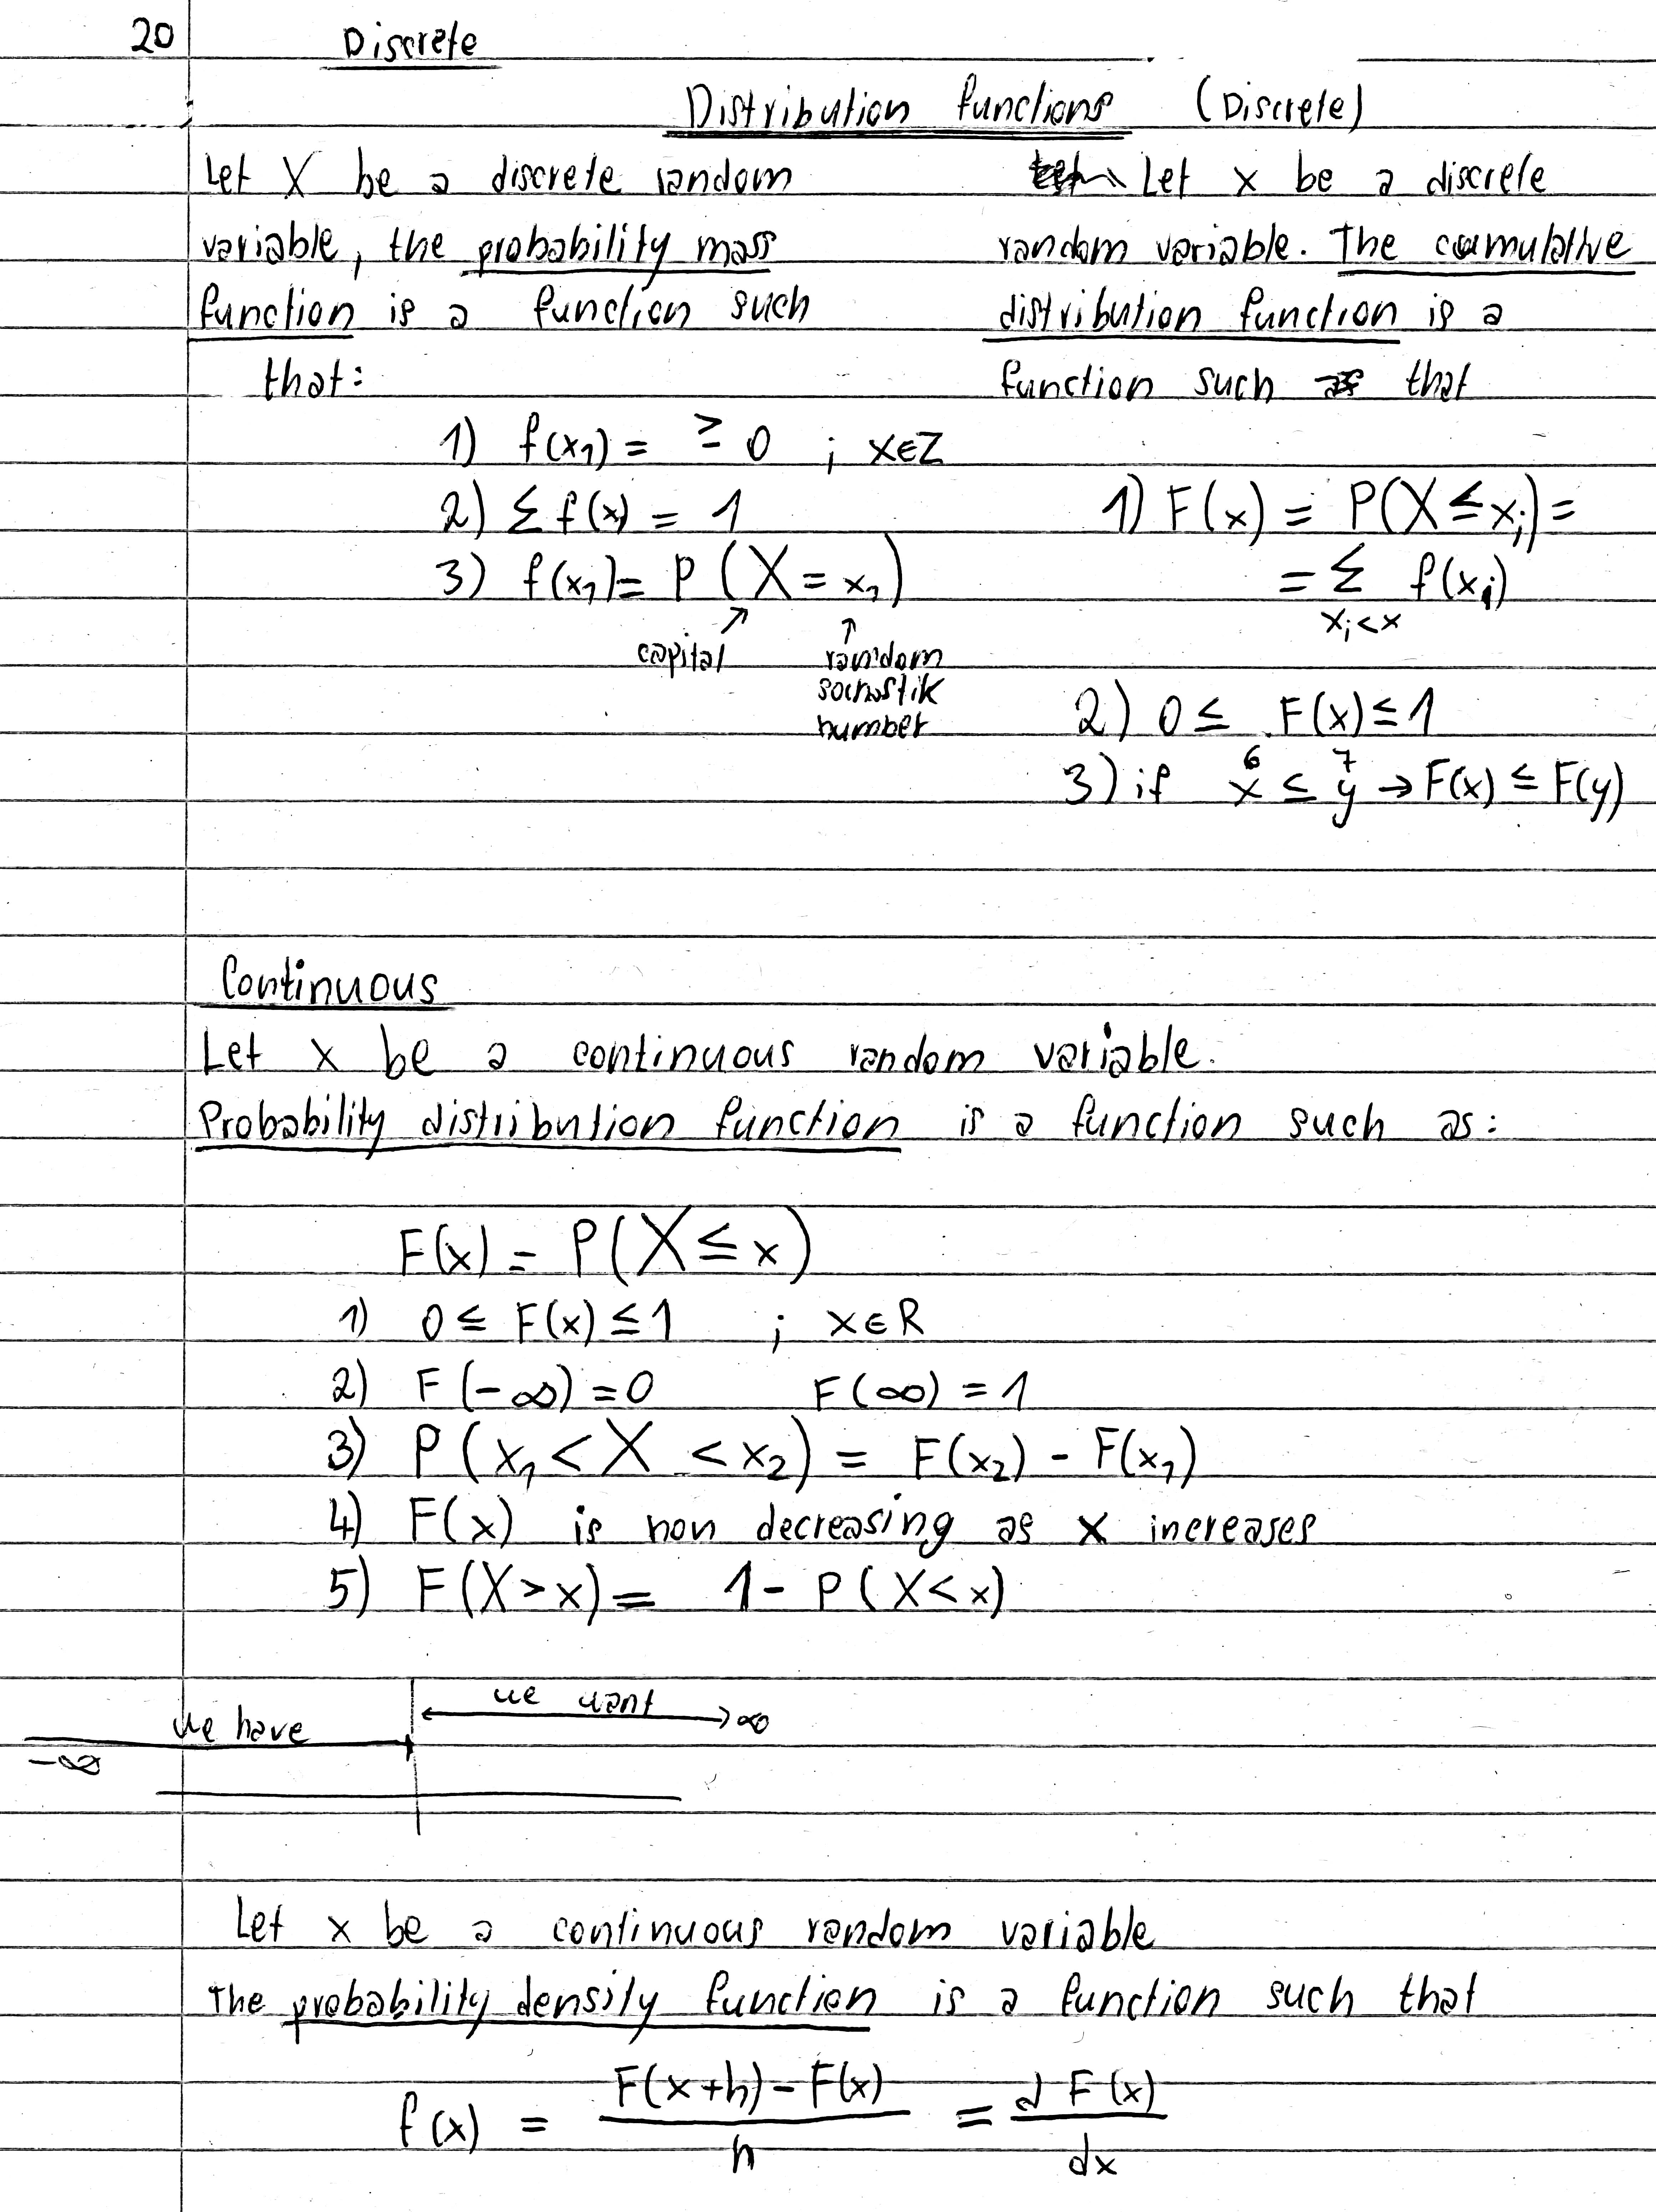 20
Discrete
Distribution functions (Discrete)
Let X be a discrete random
variable, the probability mass
function is a function such
that:
1) f(x₁) = ≥ 0 ; x∈Z
2) Σ f(x) = 1
3) f(x₁) = P (X = x₁)
capital
random
number
Let x be a discrete
random variable. The cumulative
distribution function is a
function such that
1) F(x) = P(X ≤ xᵢ) =
= Σ f(xᵢ)
xᵢ < x
2) 0 ≤ F(x) ≤ 1
6 7
3) if x ≤ y → F(x) ≤ F(y)
Continuous
Let x be a continuous random variable.
Probability distribution function is a function such as:
F(x) = P(X ≤ x)
1) 0 ≤ F(x) ≤ 1 ; x∈R
2) F(-∞) = 0 F(∞) = 1
3) P(x₁ < X < x₂) = F(x₂) - F(x₁)
4) F(x) is non decreasing as x increases
5) F(X > x) = 1 - P(X < x)
we want
∞
we have
-∞
Let x be a continuous random variable
The probability density function is a function such that
f(x) = F(x+h) - F(x) / h = d F(x) / dx